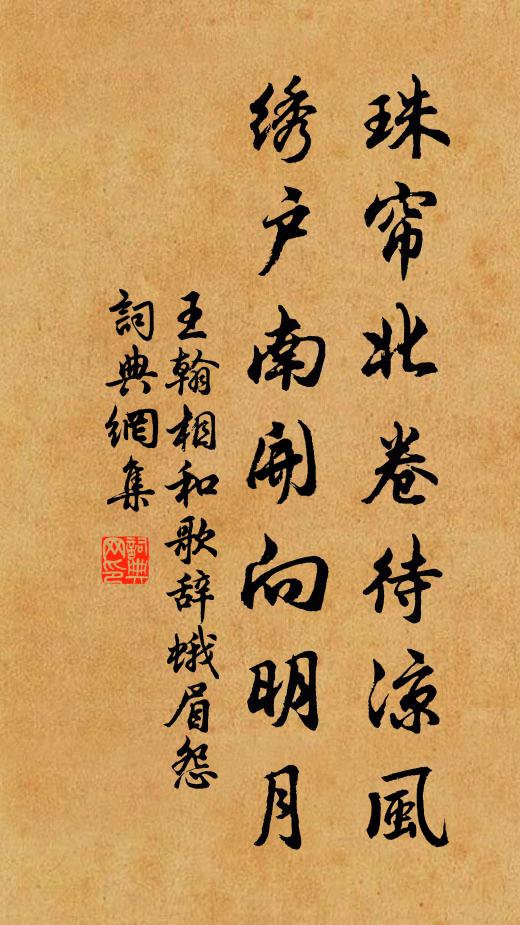 珠帘北卷待凉風
绣户南開向明月
王翰相和歌辞蛾眉怨
詞典網集
詞典
网印